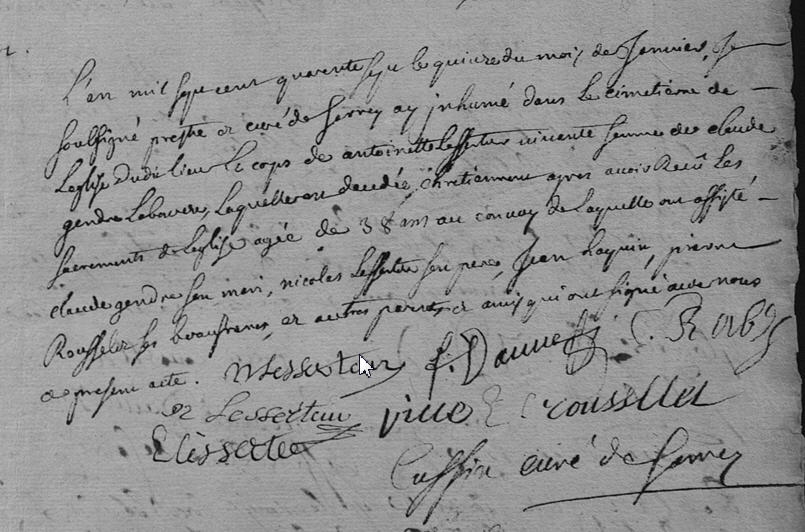 L'an mil sept cent quarente sept le quinze du mois de Janvier, Je
soussigné prestre et curé de ay inhumé dans le cimetiere de
Leglise dudit lieu le cops de antoinette Lesserteur vivante femme de claude
gendre Laboureur, Laquelle est decedée chretiennemt apres avoir Receu les
sacrements de Leglise agée de 38 ans au convoy de Laquelle ont assisté
claude gendre son mari, nicolas Lesserteur son pere, Jean, pierre
Rousselet ses beaufreres, et autres parents et amis qui ont signé avec nous
ce present acte. N Lesserteur
et Lesserteur E roussellet
E Lesserteur
curé de